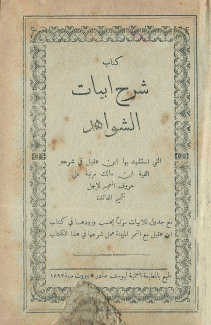 كتاب
شرح ابيات
الشواهد
التي استشهد بها ابن عقيل في شرحه
الفية ابن مالك مرتبة على
حروف المعجم لاجل
تتميم الفائدة
مع جدول للابيات مرتباً بحسب ورودها في كتاب
ابن عقيل مع النمر المبينة محل شرحها في هذا الكتاب
طبع بالمطبعة العلمية ليوسف صادر بيروت سنة ١٨٩٢